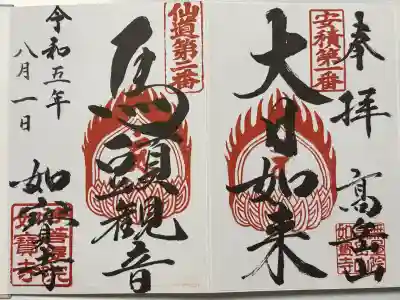 奉拝
安積第一番
大日如来
如寶寺
仙道第二番
馬頭観音
令和五年
八月一日
如寶寺
如寶寺